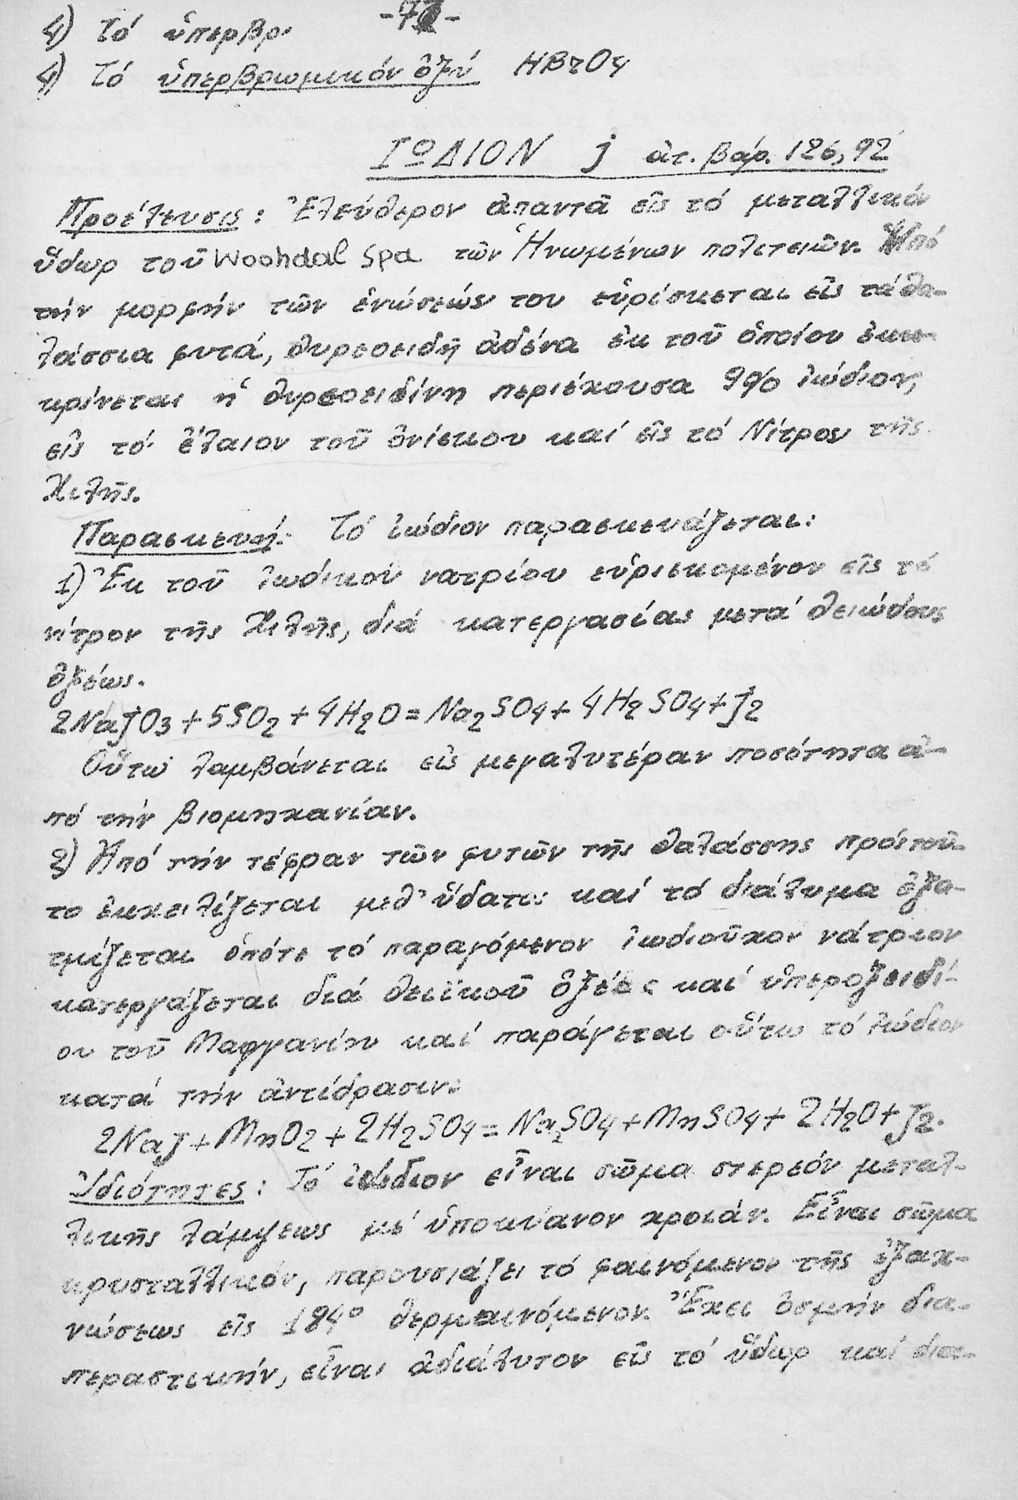 4) Τό ὑπερβρ. -71-
4) Τό ὑπερβρωμικόν ὀξύ HBrO4
ΙΩΔΙΟΝ J ἀτ. βάρ. 126,92
Προέλευσις: Ἐλεύθερον ἀπαντᾶ εἰς τό μεταλλικόν
ὕδωρ τοῦ Woohdal Spa τῶν Ἡνωμένων πολιτειῶν. Ὑπό
τήν μορφήν τῶν ἑνώσεών του εὑρίσκεται εἰς τά θα-
λάσσια φυτά, θυρεοειδῆ ἀδένα ἐκ τοῦ ὁποίου ἐκκ-
κρίνεται ἡ θυρεοειδίνη περιέχουσα 9% ἰώδιον,
εἰς τό ἔλαιον τοῦ ὀνίσκου καί εἰς τό Νίτρον τῆς
Χιλῆς.
Παρασκευή: Τό ἰώδιον παρασκευάζεται:
1) Ἐκ τοῦ ἰωδικοῦ νατρίου εὑρισκομένον εἰς τό
νίτρον τῆς Χιλῆς, διά κατεργασίας μετά θειώδους
ὀξέως.
2NaJO3+5SO2+4H2O=Na2SO4+4H2SO4+J2
Οὕτω λαμβάνεται εἰς μεγαλυτέραν ποσότητα ἀ-
πό τήν βιομηχανίαν.
2) Ἀπό τήν τέφραν τῶν φυτῶν τῆς θαλάσσης πρός τοῦ-
το ἐκχειλίζεται μεθ' ὕδατος καί τό διάλυμα ἐξα-
τμίζεται ὁπότε τό παραγόμενον ἰωδιοῦχον νάτριον
κατεργάζεται διά θειϊκοῦ ὀξέως καί ὑπεροξειδί-
ου τοῦ Μαγγανίου καί παράγεται οὕτω τό ἰώδιον
κατά τήν ἀντίδρασιν:
2NaJ+MnO2+2H2SO4=Na2SO4+MnSO4+2H2O+J2.
Ἰδιότητες: Τό ἰώδιον εἶναι σῶμα στερεόν μεταλ-
λικῆς λάμψεως μέ ὑποκύανον χροιάν. Εἶναι σῶμα
κρυσταλλικόν, παρουσιάζει τό φαινόμενον τῆς ἐξαχ-
νώσεως εἰς 184° θερμαινόμενον. Ἔχει ὀσμήν δια-
περαστικήν, εἶναι ἀδιάλυτον εἰς τό ὕδωρ καί δια-